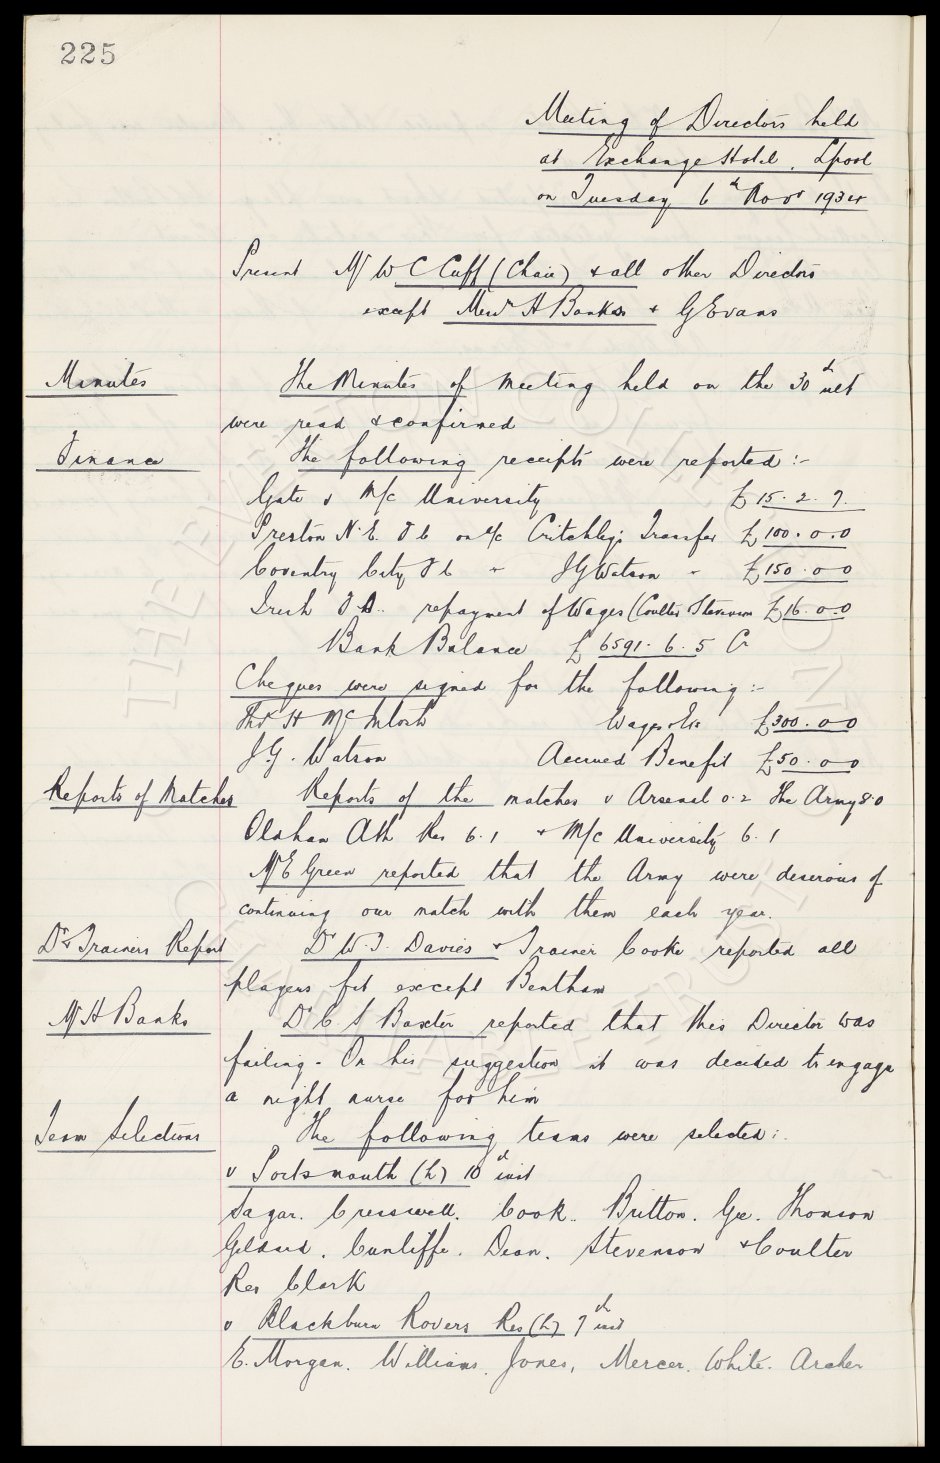 225
Meeting of Directors held
at Exchange Hotel, Lpool
on Tuesday 6th Novr 1934
Present Mr W C Cuff (Chair) & all other Directors
except Messrs H Banks & G Evans
Minutes The Minutes of meeting held on the 30th ult
were read & confirmed
Finance The following receipts were reported :-
Gate v M/c University £15. 2. 7.
Preston N. E. F C on a/c Critchley's Transfer £100. 0. 0
Coventry City F C " J G Watson " £150. 0 0
Irish F A. repayment of Wages (Coulter & Stevenson £16. 0. 0
Bank Balance £6591. 6. 5 Cr
Cheques were signed for the following :-
Theo H McIntosh Wages &c £300. 0 0
J. G. Watson Accrued Benefit £50. 0 0
Reports of Matches Reports of the matches v Arsenal 0.2 The Army 8.0
Oldham Ath Res 6.1 & M/c University 6.1
Mr E Green reported that the Army were desirous of
continuing our match with them each year.
Dr & Trainers Report Dr W. J. Davies & Trainer Cooke reported all
players fit except Bentham
Mr H Banks Dr C S Baxter reported that this Director was
failing. On his suggestion it was decided to engage
a night nurse for him
Team Selections The following teams were selected :.
v Portsmouth (h) 10th inst
Sagar. Cresswell. Cook. Britton. Gee. Thomson
Geldard. Cunliffe. Dean. Stevenson & Coulter
Res Clark
v Blackburn Rovers Res (h) 7th inst
E. Morgan. Williams. Jones, Mercer. White. Archer
THE EVERTON COLLECTION
CHARITABLE TRUST